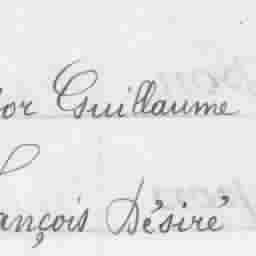 or Guillaume
ançois Désiré